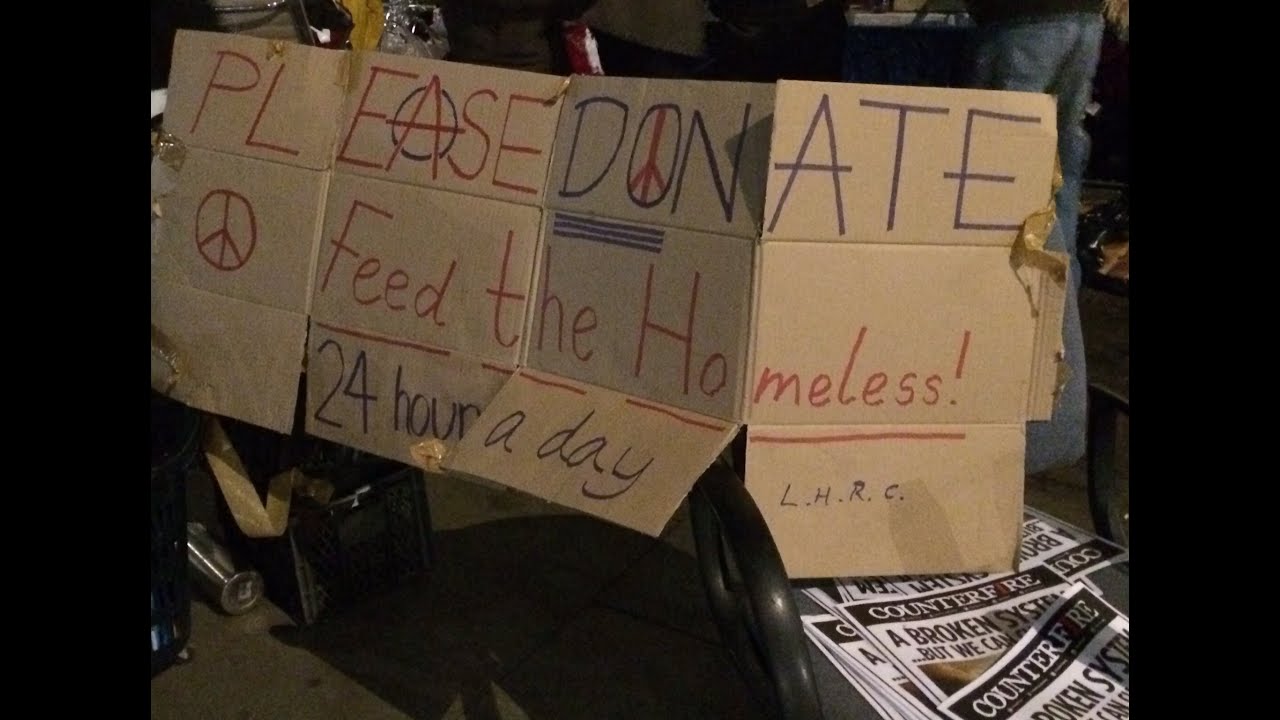 PLEASE DONATE
Feed the Homeless!
24 hour a day
L.H.R.C.
COUNTERFIRE
A BROKEN SYSTEM
...BUT WE CAN
COUNTERFIRE
BROKEN SYSTEM